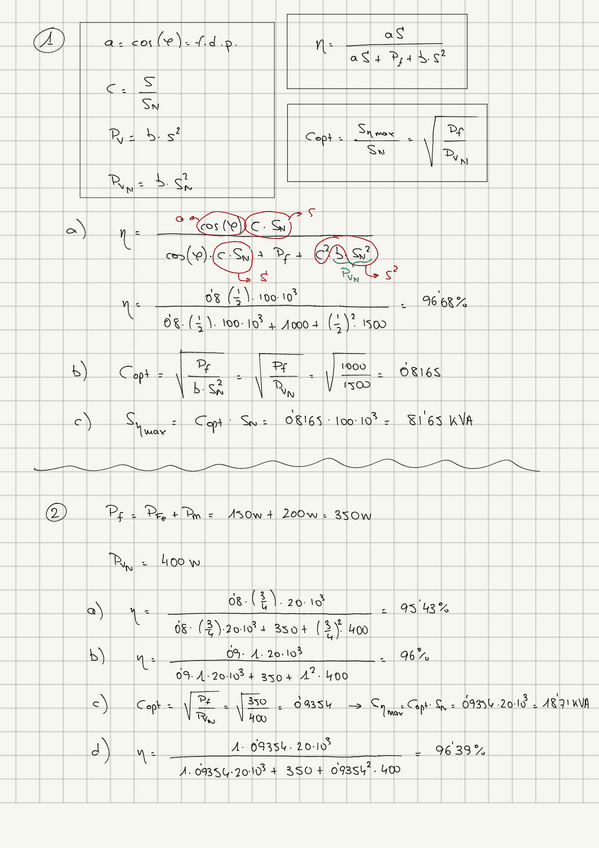 1
a = cos(φ) = f.d.p.
C = S / S_N
P_V = b · s²
P_VN = b · S_N²
η = aS / (aS + P_f + b·s²)
C_opt = S_ηmax / S_N = √(P_f / P_VN)
a) η = cos(φ) · C · S_N / (cos(φ) · C · S_N + P_f + C² · b · S_N²)
a S
S P_VN S²
η = 0'8 (1/2) · 100·10³ / (0'8 · (1/2) · 100·10³ + 1000 + (1/2)² · 1500) = 96'68%
b) C_opt = √(P_f / b·S_N²) = √(P_f / P_VN) = √(1000 / 1500) = 0'8165
c) S_ηmax = C_opt · S_N = 0'8165 · 100·10³ = 81'65 KVA
2 P_f = P_Fe + P_m = 150w + 200w = 350w
P_VN = 400 w
a) η = 0'8 · (3/4) · 20·10³ / (0'8 · (3/4) · 20·10³ + 350 + (3/4)² · 400) = 95'43%
b) η = 0'9 · 1 · 20·10³ / (0'9 · 1 · 20·10³ + 350 + 1² · 400) = 96%
c) C_opt = √(P_f / P_VN) = √(350 / 400) = 0'9354 → C_ηmax = C_opt · S_N = 0'9354 · 20·10³ = 18'71 KVA
d) η = 1 · 0'9354 · 20·10³ / (1 · 0'9354 · 20·10³ + 350 + 0'9354² · 400) = 96'39%